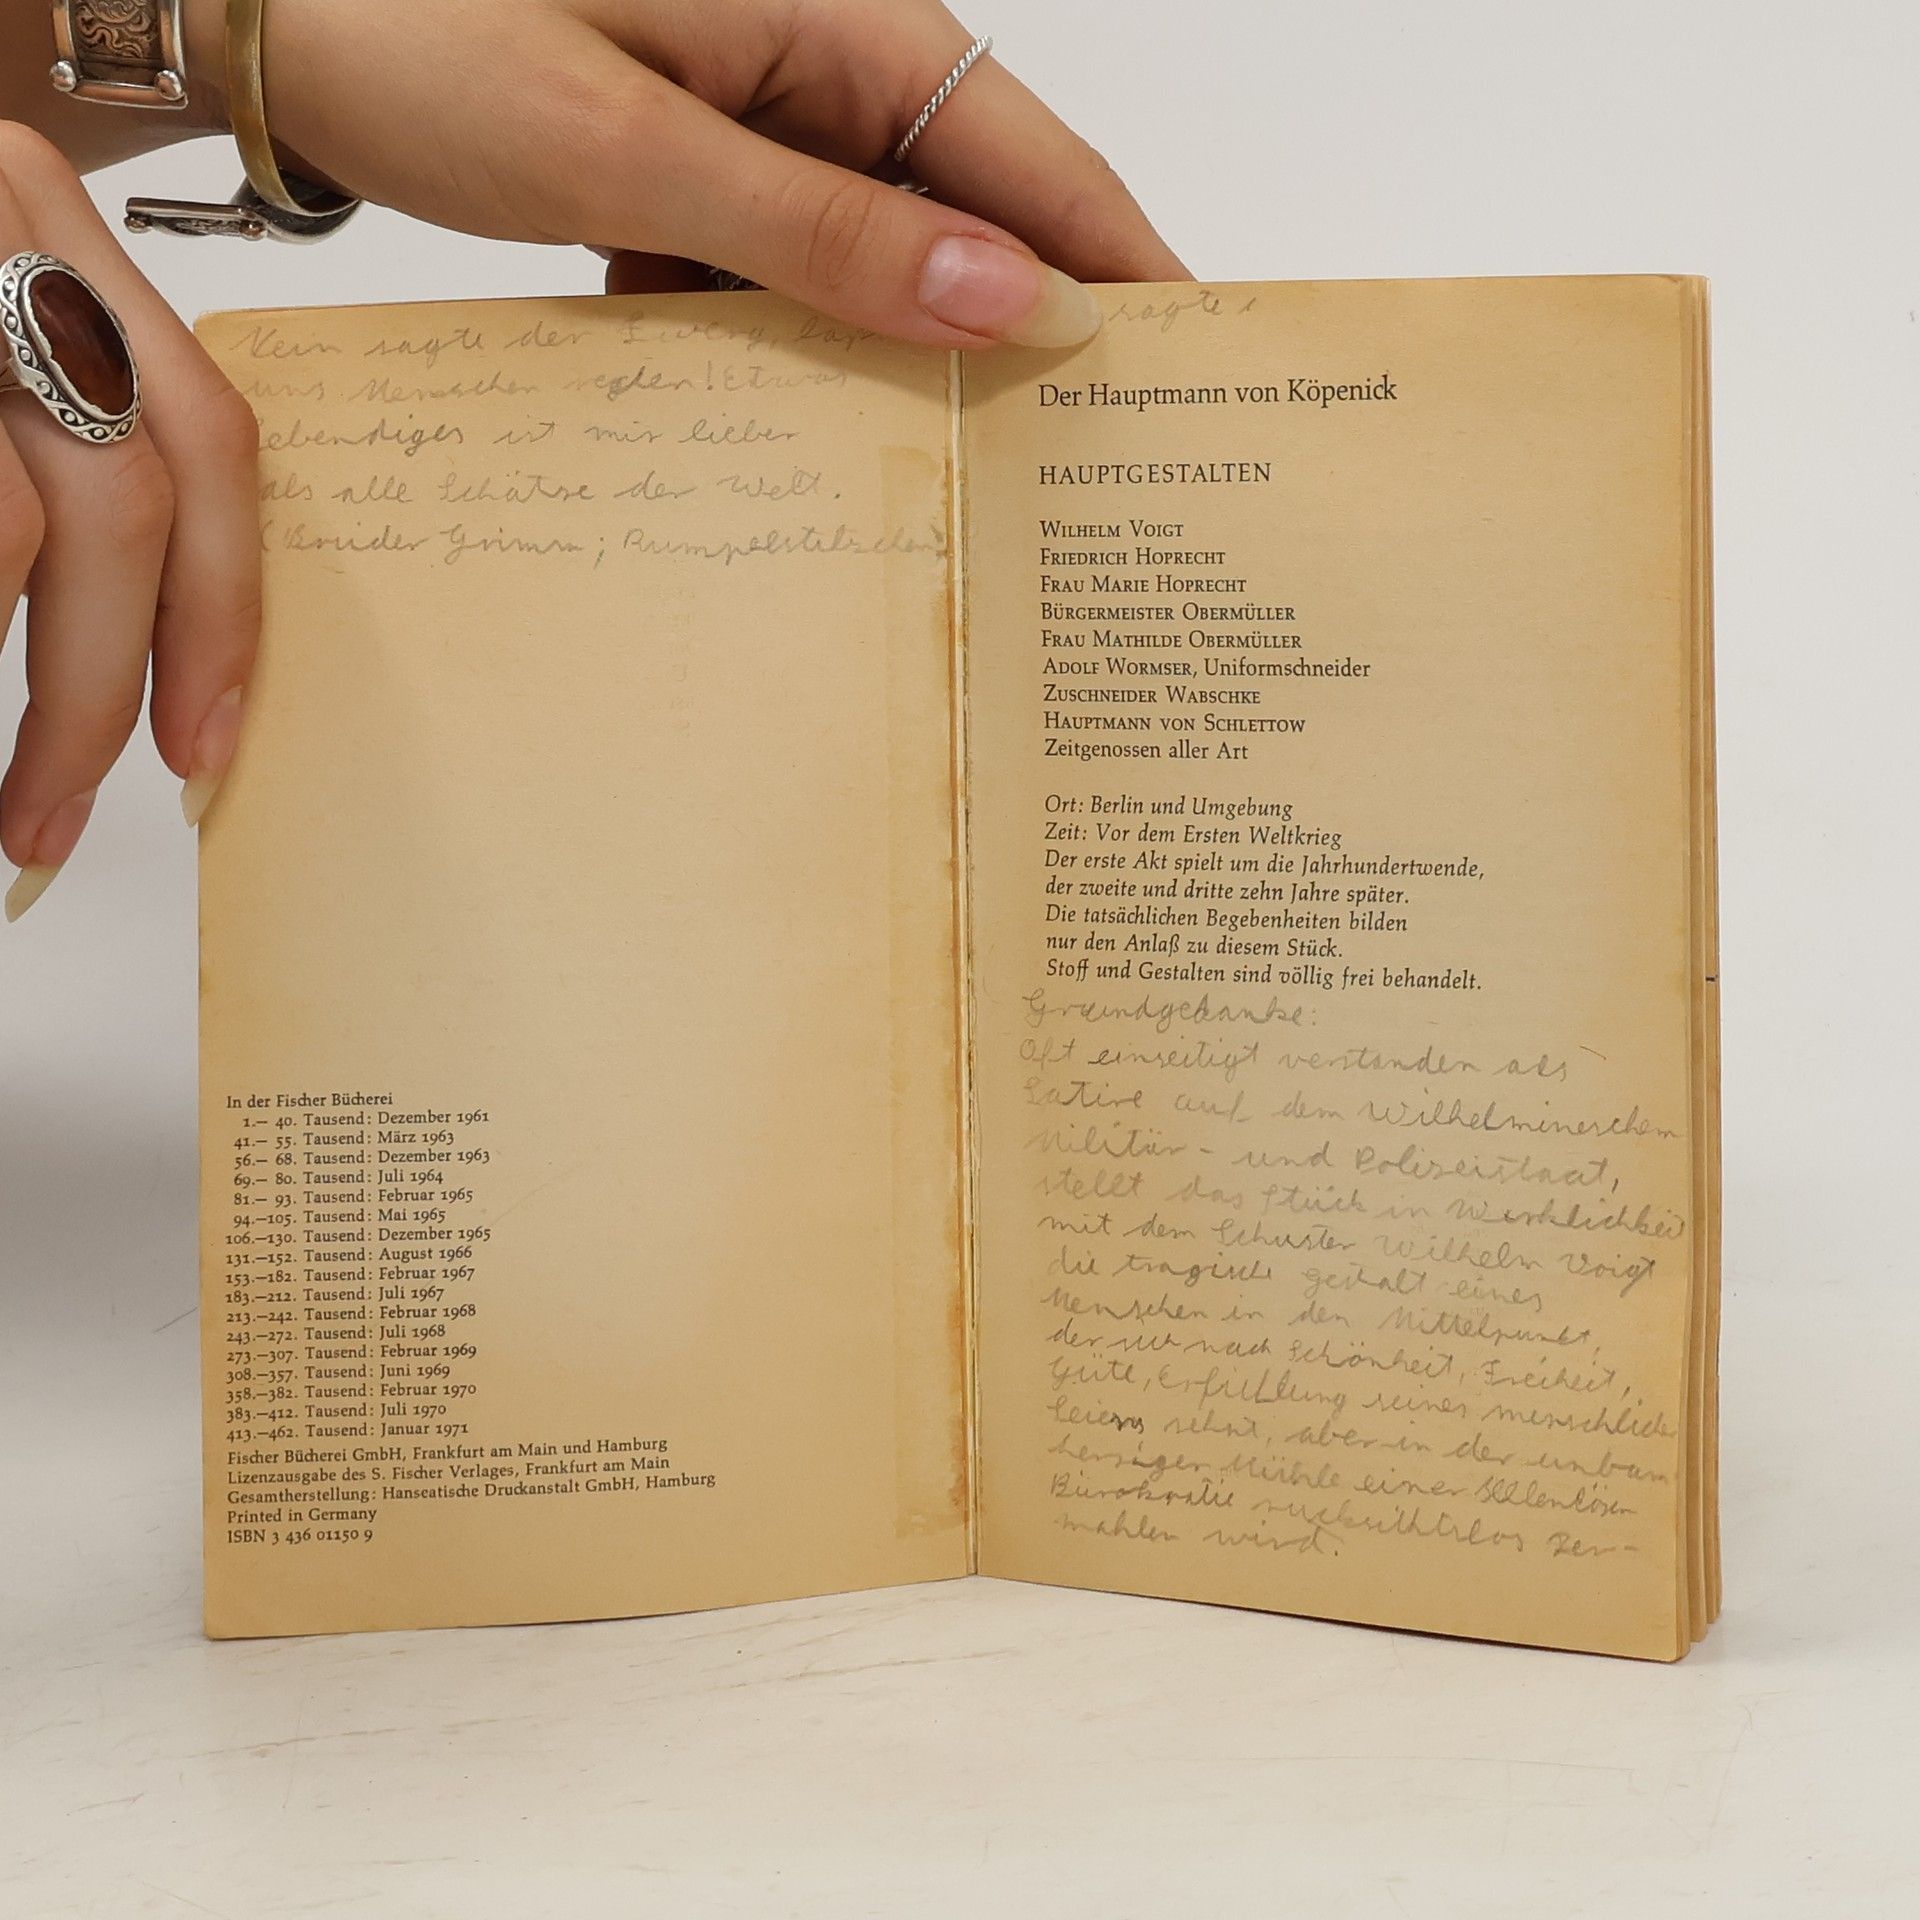 Nein sagte der Zwerg, laß
uns Menschen reden! Etwas
Lebendiges ist mir lieber
als alle Schätze der Welt.
(Brüder Grimm; Rumpelstilzchen)
In der Fischer Bücherei
1.– 40. Tausend: Dezember 1961
41.– 55. Tausend: März 1963
56.– 68. Tausend: Dezember 1963
69.– 80. Tausend: Juli 1964
81.– 93. Tausend: Februar 1965
94.–105. Tausend: Mai 1965
106.–130. Tausend: Dezember 1965
131.–152. Tausend: August 1966
153.–182. Tausend: Februar 1967
183.–212. Tausend: Juli 1967
213.–242. Tausend: Februar 1968
243.–272. Tausend: Juli 1968
273.–307. Tausend: Februar 1969
308.–357. Tausend: Juni 1969
358.–382. Tausend: Februar 1970
383.–412. Tausend: Juli 1970
413.–462. Tausend: Januar 1971
Fischer Bücherei GmbH, Frankfurt am Main und Hamburg
Lizenzausgabe des S. Fischer Verlages, Frankfurt am Main
Gesamtherstellung: Hanseatische Druckanstalt GmbH, Hamburg
Printed in Germany
ISBN 3 436 01150 9
sagte
Der Hauptmann von Köpenick
HAUPTGESTALTEN
WILHELM VOIGT
FRIEDRICH HOPRECHT
FRAU MARIE HOPRECHT
BÜRGERMEISTER OBERMÜLLER
FRAU MATHILDE OBERMÜLLER
ADOLF WORMSER, Uniformschneider
ZUSCHNEIDER WABSCHKE
HAUPTMANN VON SCHLETTOW
Zeitgenossen aller Art
Ort: Berlin und Umgebung
Zeit: Vor dem Ersten Weltkrieg
Der erste Akt spielt um die Jahrhundertwende,
der zweite und dritte zehn Jahre später.
Die tatsächlichen Begebenheiten bilden
nur den Anlaß zu diesem Stück.
Stoff und Gestalten sind völlig frei behandelt.
Grundgedanke:
Oft einseitigt verstanden als
Satire auf dem Wilhelmineschem
Militär- und Polizeistaat,
stellt das Stück in Wirklichkei
mit dem Schuster Wilhelm Voigt
die tragische Gestalt eines
Menschen in den Mittelpunkt,
der sich nach Schönheit, Freiheit,
Güte, Erfüllung seines menschlichen
Seiens sehnt, aber in der unbarm
herziger Mühle einer seelenlosen
Bürokratie rucksichtslos zer-
mahlen wird.